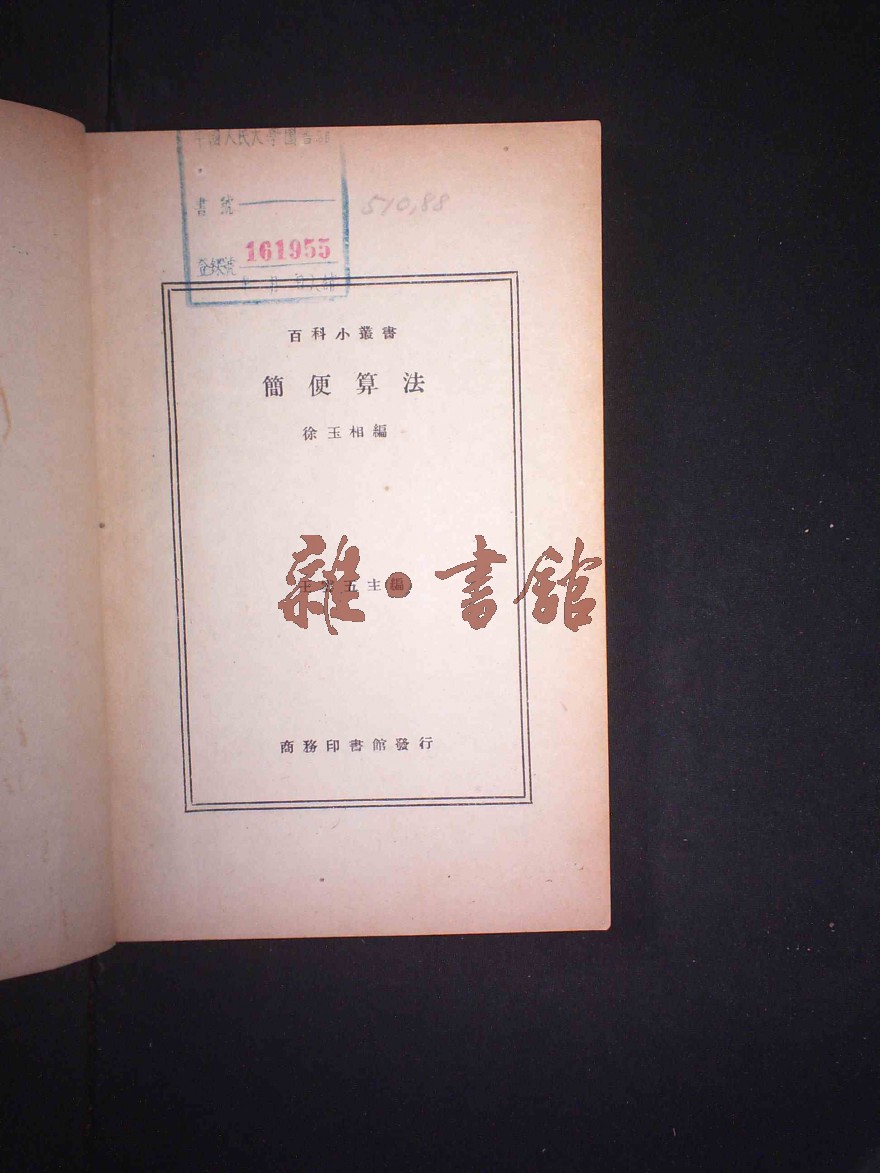 中國人民大學图書館
書號
510.88
登錄號 161955
百科小叢書
簡便算法
徐玉相編
王雲五主編
雜·書館
商務印書館發行